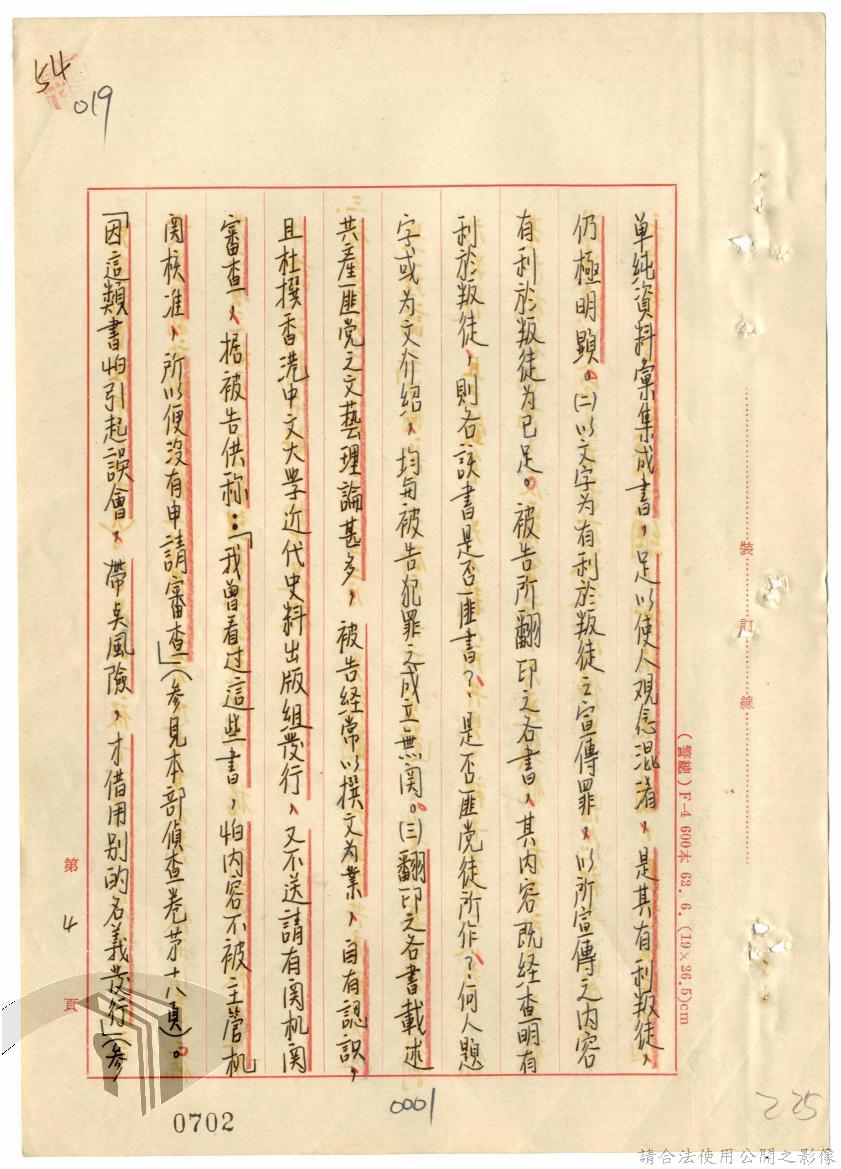 54
019
单純資料彙集成書，足以使人观念混淆，是其有利叛徒，
仍極明顯。㈡以文字为有利於叛徒之宣傳罪，以所宣傳之内容
有利於叛徒为已足。被告所翻印之各書，其内容既経查明有
利於叛徒，則各該書是否匪書？是否匪党徒所作？何人題
字或为文介紹，均与被告犯罪之成立無関。㈢翻印之各書載述
共產匪党之文藝理論甚多，被告経常以撰文为業，自有認識，
且杜撰香港中文大学近代史料出版組發行，又不送請有関机関
審查，据被告供称：「我曾看过這些書，怕内容不被主管机
関核准，所以便沒有申請審查」（参見本部偵查卷第十八頁）。
「因這類書怕引起誤會，帶点風險，才借用別的名義發行」（参
第 4 頁
裝 訂 線
F-4 600本 62. 6. (19×26.5)cm
0702
0001
225
請合法使用公開之影像